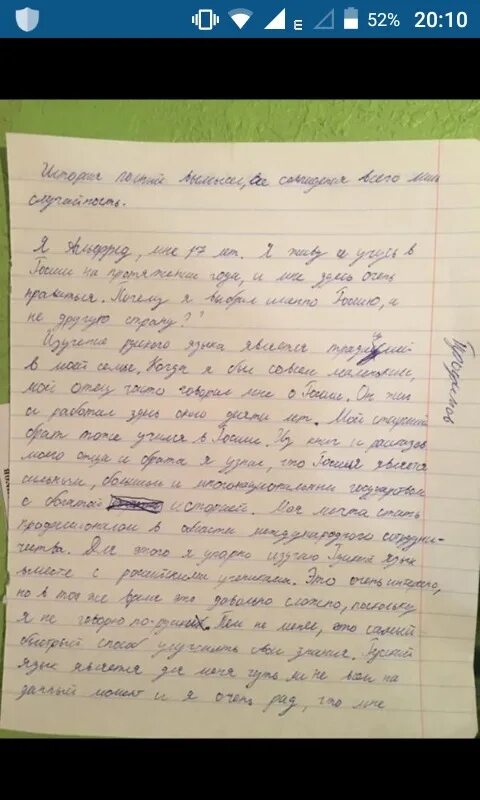 52% 20:10
История полный вымысел, все совпадения всего лишь
случайность.
Я Альфред, мне 17 лет. Я живу и учусь в
России на протяжении года, и мне здесь очень
нравиться. Почему я выбрал именно Россию, а
не другую страну?
Изучение руского языка является традицией
в моей семье. Когда я был совсем маленьким,
мой отец часто говорил мне о России. Он жил
и работал здесь около десяти лет. Мой старший
брат тоже учился в России. Из книг и рассказов
моего отца и брата я узнал, что Россия является
сильным, большим и многонациональным государством
с богатой историей. Моя мечта стать
профессионалом в области международного сотрудни-
чества. Для этого я упорно изучаю Русский язык
вместе с российскими учениками. Это очень интересно,
но в тоже время это довольно сложно, поскольку
я не говорю по-русски. Тем не менее, это самый
быстрый способ улучшить свои знания. Русский
язык является для меня чуть ли не всем на
данный момент и я очень рад, что мне